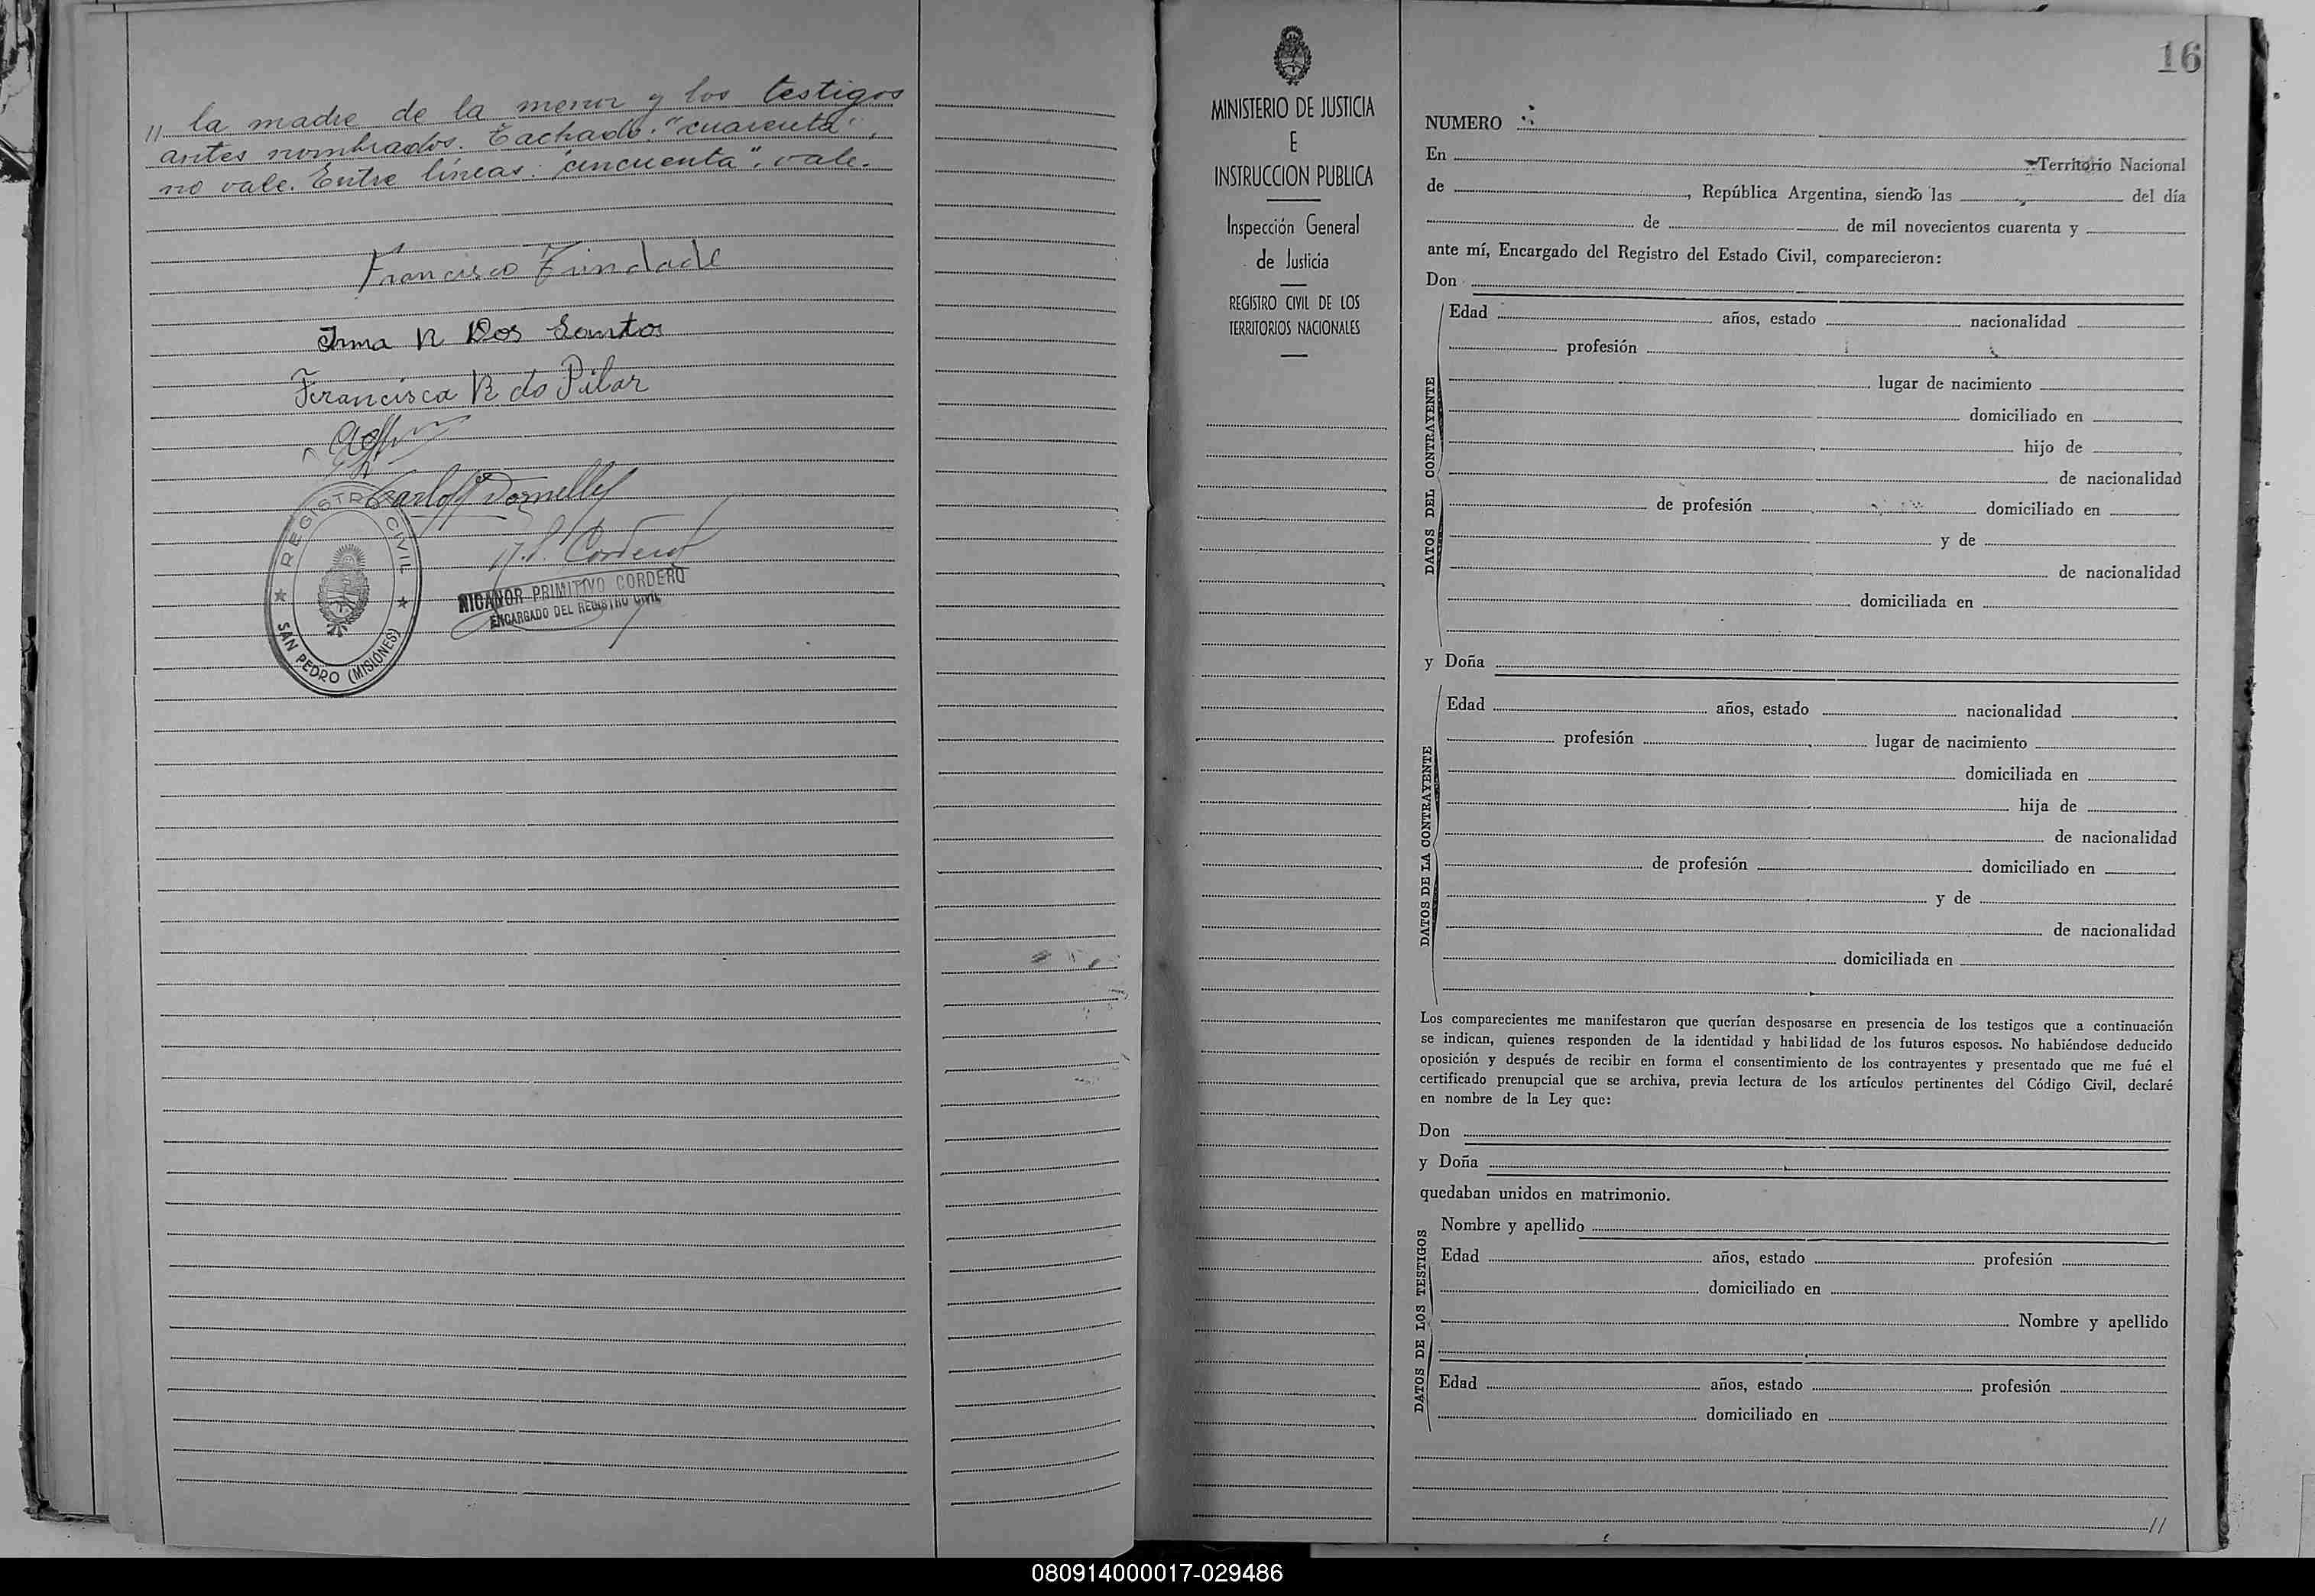 // la madre de la menor y los testigos
antes nombrados. Tachado: "cuarenta",
no vale. Entre líneas: "cincuenta", vale.
Francisco Trindade
Irma R Dos Santos
Francisca R do Pilar
Carlos Dornelles
N. P. Cordero
REGISTRO CIVIL
SAN PEDRO (MISIONES)
NICANOR PRIMITIVO CORDERO
ENCARGADO DEL REGISTRO CIVIL
MINISTERIO DE JUSTICIA
E
INSTRUCCION PUBLICA
Inspección General
de Justicia
REGISTRO CIVIL DE LOS
TERRITORIOS NACIONALES
16
NUMERO
En Territorio Nacional
de , República Argentina, siendo las del día
de de mil novecientos cuarenta y
ante mí, Encargado del Registro del Estado Civil, comparecieron:
Don
DATOS DEL CONTRAYENTE
Edad años, estado nacionalidad
profesión
lugar de nacimiento
domiciliado en
hijo de
de nacionalidad
de profesión domiciliado en
y de
de nacionalidad
domiciliada en
y Doña
DATOS DE LA CONTRAYENTE
Edad años, estado nacionalidad
profesión lugar de nacimiento
domiciliada en
hija de
de nacionalidad
de profesión domiciliado en
y de
de nacionalidad
domiciliada en
Los comparecientes me manifestaron que querían desposarse en presencia de los testigos que a continuación
se indican, quienes responden de la identidad y habilidad de los futuros esposos. No habiéndose deducido
oposición y después de recibir en forma el consentimiento de los contrayentes y presentado que me fué el
certificado prenupcial que se archiva, previa lectura de los artículos pertinentes del Código Civil, declaré
en nombre de la Ley que:
Don
y Doña
quedaban unidos en matrimonio.
DATOS DE LOS TESTIGOS
Nombre y apellido
Edad años, estado profesión
domiciliado en
Nombre y apellido
Edad años, estado profesión
domiciliado en
//
080914000017-029486